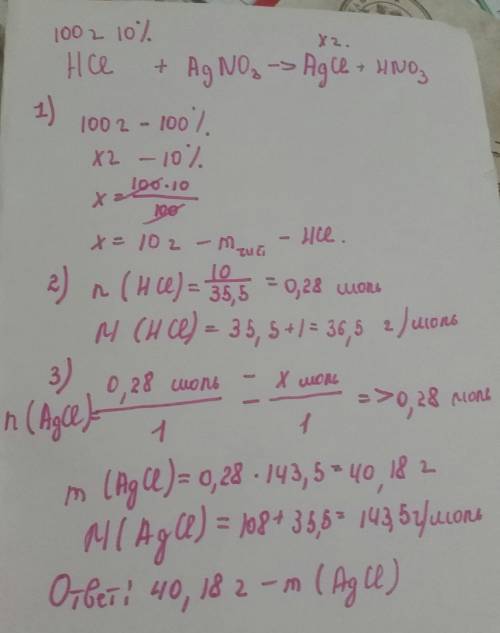 100г 10%
хг.
HCl + AgNO₃ -> AgCl + HNO₃
1)
100г - 100%.
хг - 10%
x = 100·10
100
x = 10г - m чист - HCl.
2) n (HCl) = 10 = 0,28 моль
35,5
M (HCl) = 35,5+1 = 36,5 г/моль
3)
n(AgCl)= 0,28 моль = x моль => 0,28 моль
1 1
m (AgCl) = 0,28 · 143,5 = 40,18 г
M (AgCl) = 108 + 35,5 = 143,5 г/моль
Ответ: 40,18 г - m (AgCl)